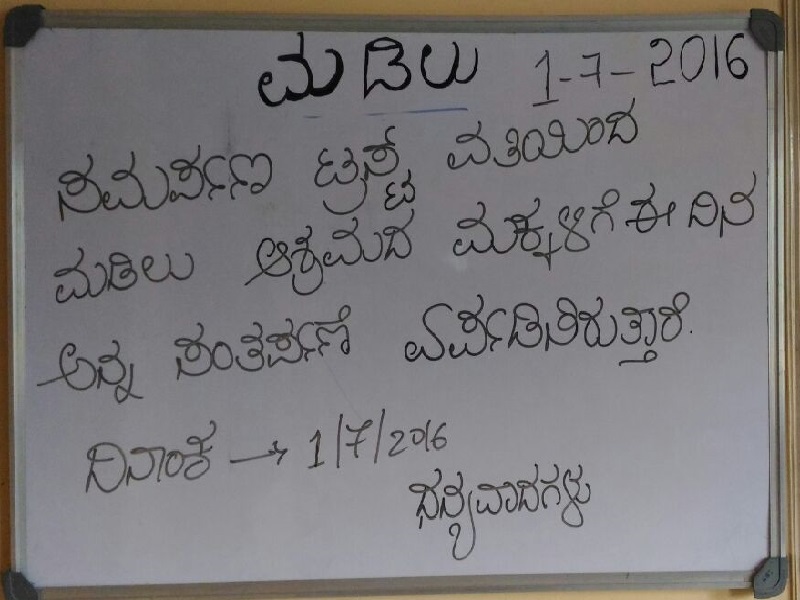 ಮಡಿಲು 1-7-2016
ಸಮರ್ಪಣ ಟ್ರಸ್ಟ್ ವತಿಯಿಂದ
ಮಡಿಲು ಆಶ್ರಮದ ಮಕ್ಕಳಿಗೆ ಈ ದಿನ
ಅನ್ನ ಸಂತರ್ಪಣೆ ಏರ್ಪಡಿಸಿರುತ್ತಾರೆ.
ದಿನಾಂಕ → 1/7/2016
ಧನ್ಯವಾದಗಳು